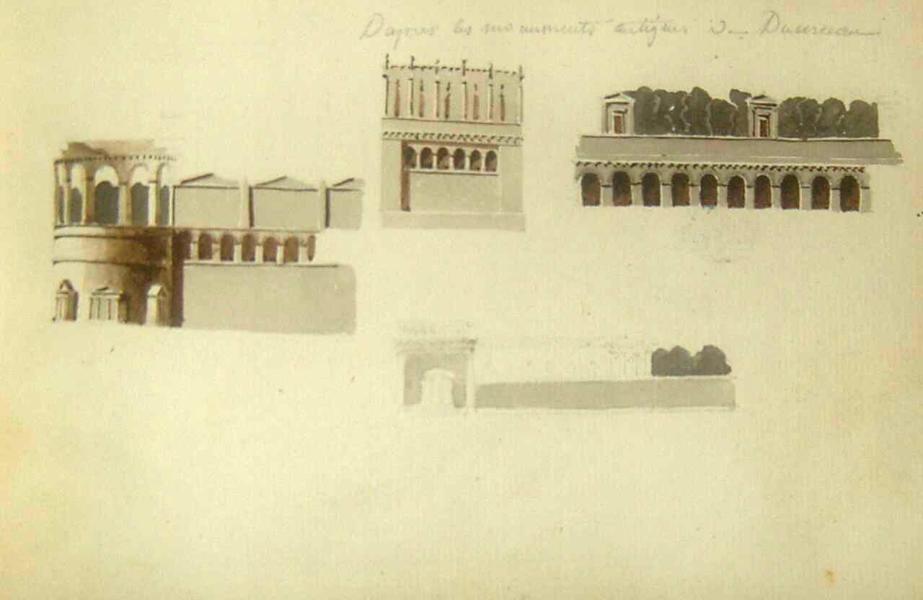 D'après les monuments antiques de Ducerceau